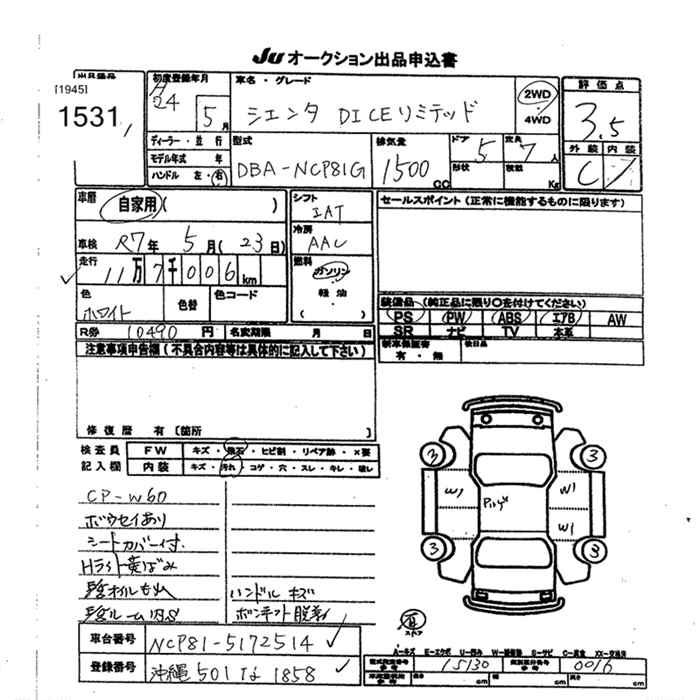 JU オークション出品申込書
出品番号
[1945]
1531
初度登録年月
24 5月
車名・グレード
シエンタ DICEリミテッド
2WD
4WD
評価点
3.5
外装 内装
C
ディーラー・並行
モデル年式 年
ハンドル 左・右
型式
DBA-NCP81G
排気量
1500 CC
ドア 5
形状
定員 7人
積載 Kg
車歴
自家用( )
シフト
IAT
冷房
AAC
燃料
ガソリン
軽油
( )
セールスポイント(正常に機能するものに限ります)
車検 R7年 5月(23日)
走行 11万7千006km
色
ホワイト
色替
色コード
R券 10490円 名変期限 月 日
装備品(純正品に限り○を付けてください)
PS PW ABS エアB AW
SR ナビ TV 本革
新車保証書
有・無
後日品
注意事項申告欄(不具合内容等は具体的に記入して下さい)
修復歴 有〔箇所 〕
検査員
記入欄
FW キズ・飛石・ヒビ割・リペア跡・×要
内装 キズ・汚れ・コゲ・穴・スレ・キレ・破レ
CP-W60
ボウセイあり
シートカバー付
Hライト黄ばみ
ハンドル キズ
3 3
W1 W1
W1
3 3
車台番号 NCP81-5172514
登録番号 沖縄 501 な 1858
A-キズ E-エクボ U-凹み W-補修跡 S-サビ C-腐食 XX-交換済
型式指定番号 15130 類別区分番号 0016
cm cm cm